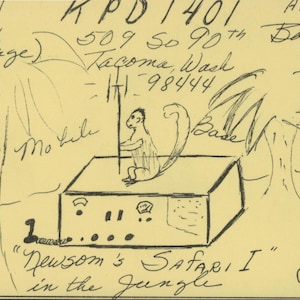 KPD 1401
509 So 90th
Tacoma, Wash
98444
Mobile
Base
"Newsom's SafaRI I"
in the Jungle